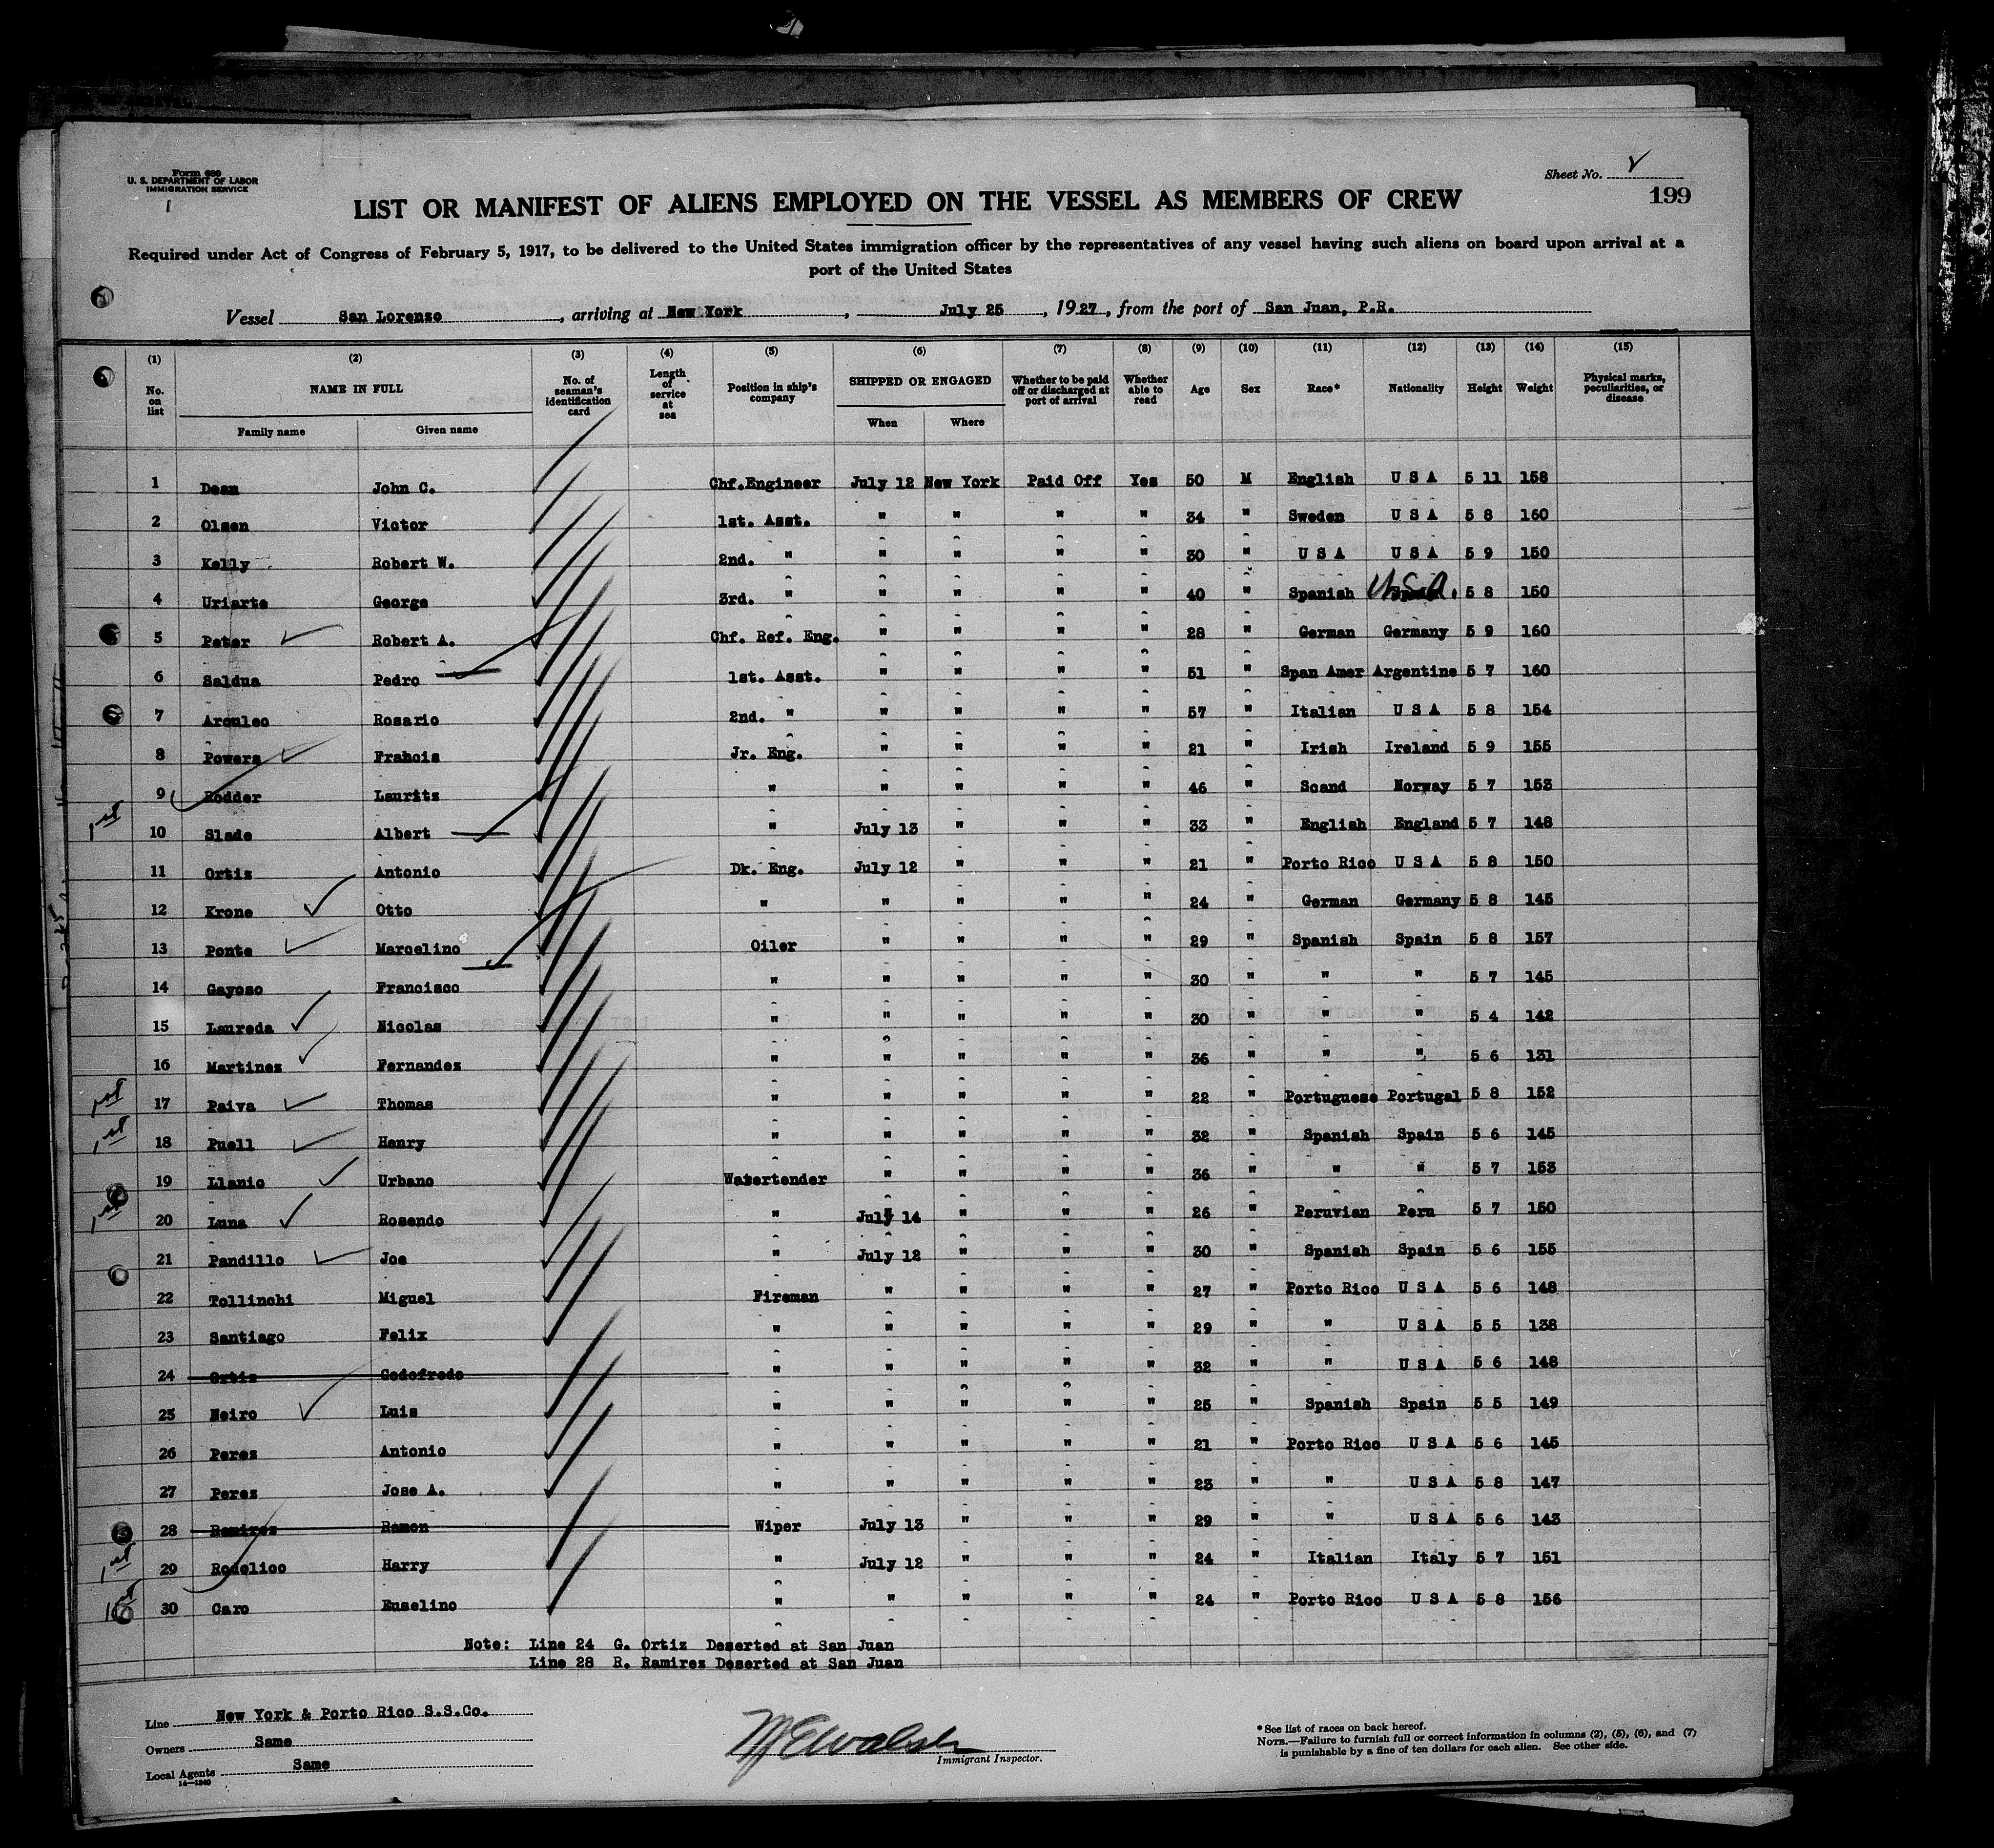 Form 680
U. S. DEPARTMENT OF LABOR
IMMIGRATION SERVICE
1
Sheet No.
199
LIST OR MANIFEST OF ALIENS EMPLOYED ON THE VESSEL AS MEMBERS OF CREW
Required under Act of Congress of February 5, 1917, to be delivered to the United States immigration officer by the representatives of any vessel having such aliens on board upon arrival at a
port of the United States
Vessel San Lorenzo, arriving at New York, July 25, 1927, from the port of San Juan, P.R.
(1) (2) (3) (4) (5) (6) (7) (8) (9) (10) (11) (12) (13) (14) (15)
No. on list NAME IN FULL Family name Given name No. of seaman's identification card Length of service at sea Position in ship's company SHIPPED OR ENGAGED When Where Whether to be paid off or discharged at port of arrival Whether able to read Age Sex Race* Nationality Height Weight Physical marks, peculiarities, or disease
1 Dean John C. Chf.Engineer July 12 New York Paid Off Yes 50 M English U S A 5 11 158
2 Olsen Victor 1st. Asst. " " " " 34 " Sweden U S A 5 8 160
3 Kelly Robert W. 2nd. " " " " " 30 " U S A U S A 5 9 150
4 Uriarte George 3rd. " " " " " 40 " Spanish U.S.A. 5 8 150
5 Peter Robert A. Chf. Ref. Eng. " " " " 28 " German Germany 5 9 160
6 Saldua Pedro 1st. Asst. " " " " 51 " Span Amer Argentine 5 7 160
7 Arculeo Rosario 2nd. " " " " " 57 " Italian U S A 5 8 154
8 Powers Francis Jr. Eng. " " " " 21 " Irish Ireland 5 9 155
9 Rodder Lauritz " " " " " 46 " Scand Norway 5 7 153
1st 10 Slade Albert " July 13 " " " 33 " English England 5 7 148
11 Ortiz Antonio Dk. Eng. July 12 " " " 21 " Porto Rico U S A 5 8 150
12 Krone Otto " " " " " 24 " German Germany 5 8 145
13 Ponte Marcelino Oiler " " " " 29 " Spanish Spain 5 8 157
14 Gayoso Francisco " " " " " 30 " " " 5 7 145
15 Laureda Nicolas " " " " " 30 " " " 5 4 142
16 Martinez Fernandez " " " " " 36 " " " 5 6 131
1st 17 Paiva Thomas " " " " " 22 " Portuguese Portugal 5 8 152
1st 18 Puell Henry " " " " " 32 " Spanish Spain 5 6 145
19 Llanio Urbano Watertender " " " " 36 " " " 5 7 153
1st 20 Luna Rosendo " July 14 " " " 26 " Peruvian Peru 5 7 150
21 Pandillo Joe " July 12 " " " 30 " Spanish Spain 5 6 155
22 Tollinchi Miguel Fireman " " " " 27 " Porto Rico U S A 5 6 148
23 Santiago Felix " " " " " 29 " " U S A 5 5 138
24 Ortiz Godofredo " " " " " 32 " " U S A 5 6 148
25 Neiro Luis " " " " " 25 " Spanish Spain 5 5 149
26 Perez Antonio " " " " " 21 " Porto Rico U S A 5 6 145
27 Perez Jose A. " " " " " 23 " " U S A 5 8 147
28 Ramirez Ramon Wiper July 13 " " " 29 " " U S A 5 6 143
1st 29 Rodelico Harry " July 12 " " " 24 " Italian Italy 5 7 151
1st 30 Caro Euselino " " " " " 24 " Porto Rico U S A 5 8 156
Note: Line 24 G. Ortiz Deserted at San Juan
Line 28 R. Ramirez Deserted at San Juan
Line New York & Porto Rico S.S.Co.
Owners Same
Local Agents Same
14—1240
M E Walsh
Immigrant Inspector.
* See list of races on back hereof.
NOTE.—Failure to furnish full or correct information in columns (2), (5), (6), and (7)
is punishable by a fine of ten dollars for each alien. See other side.